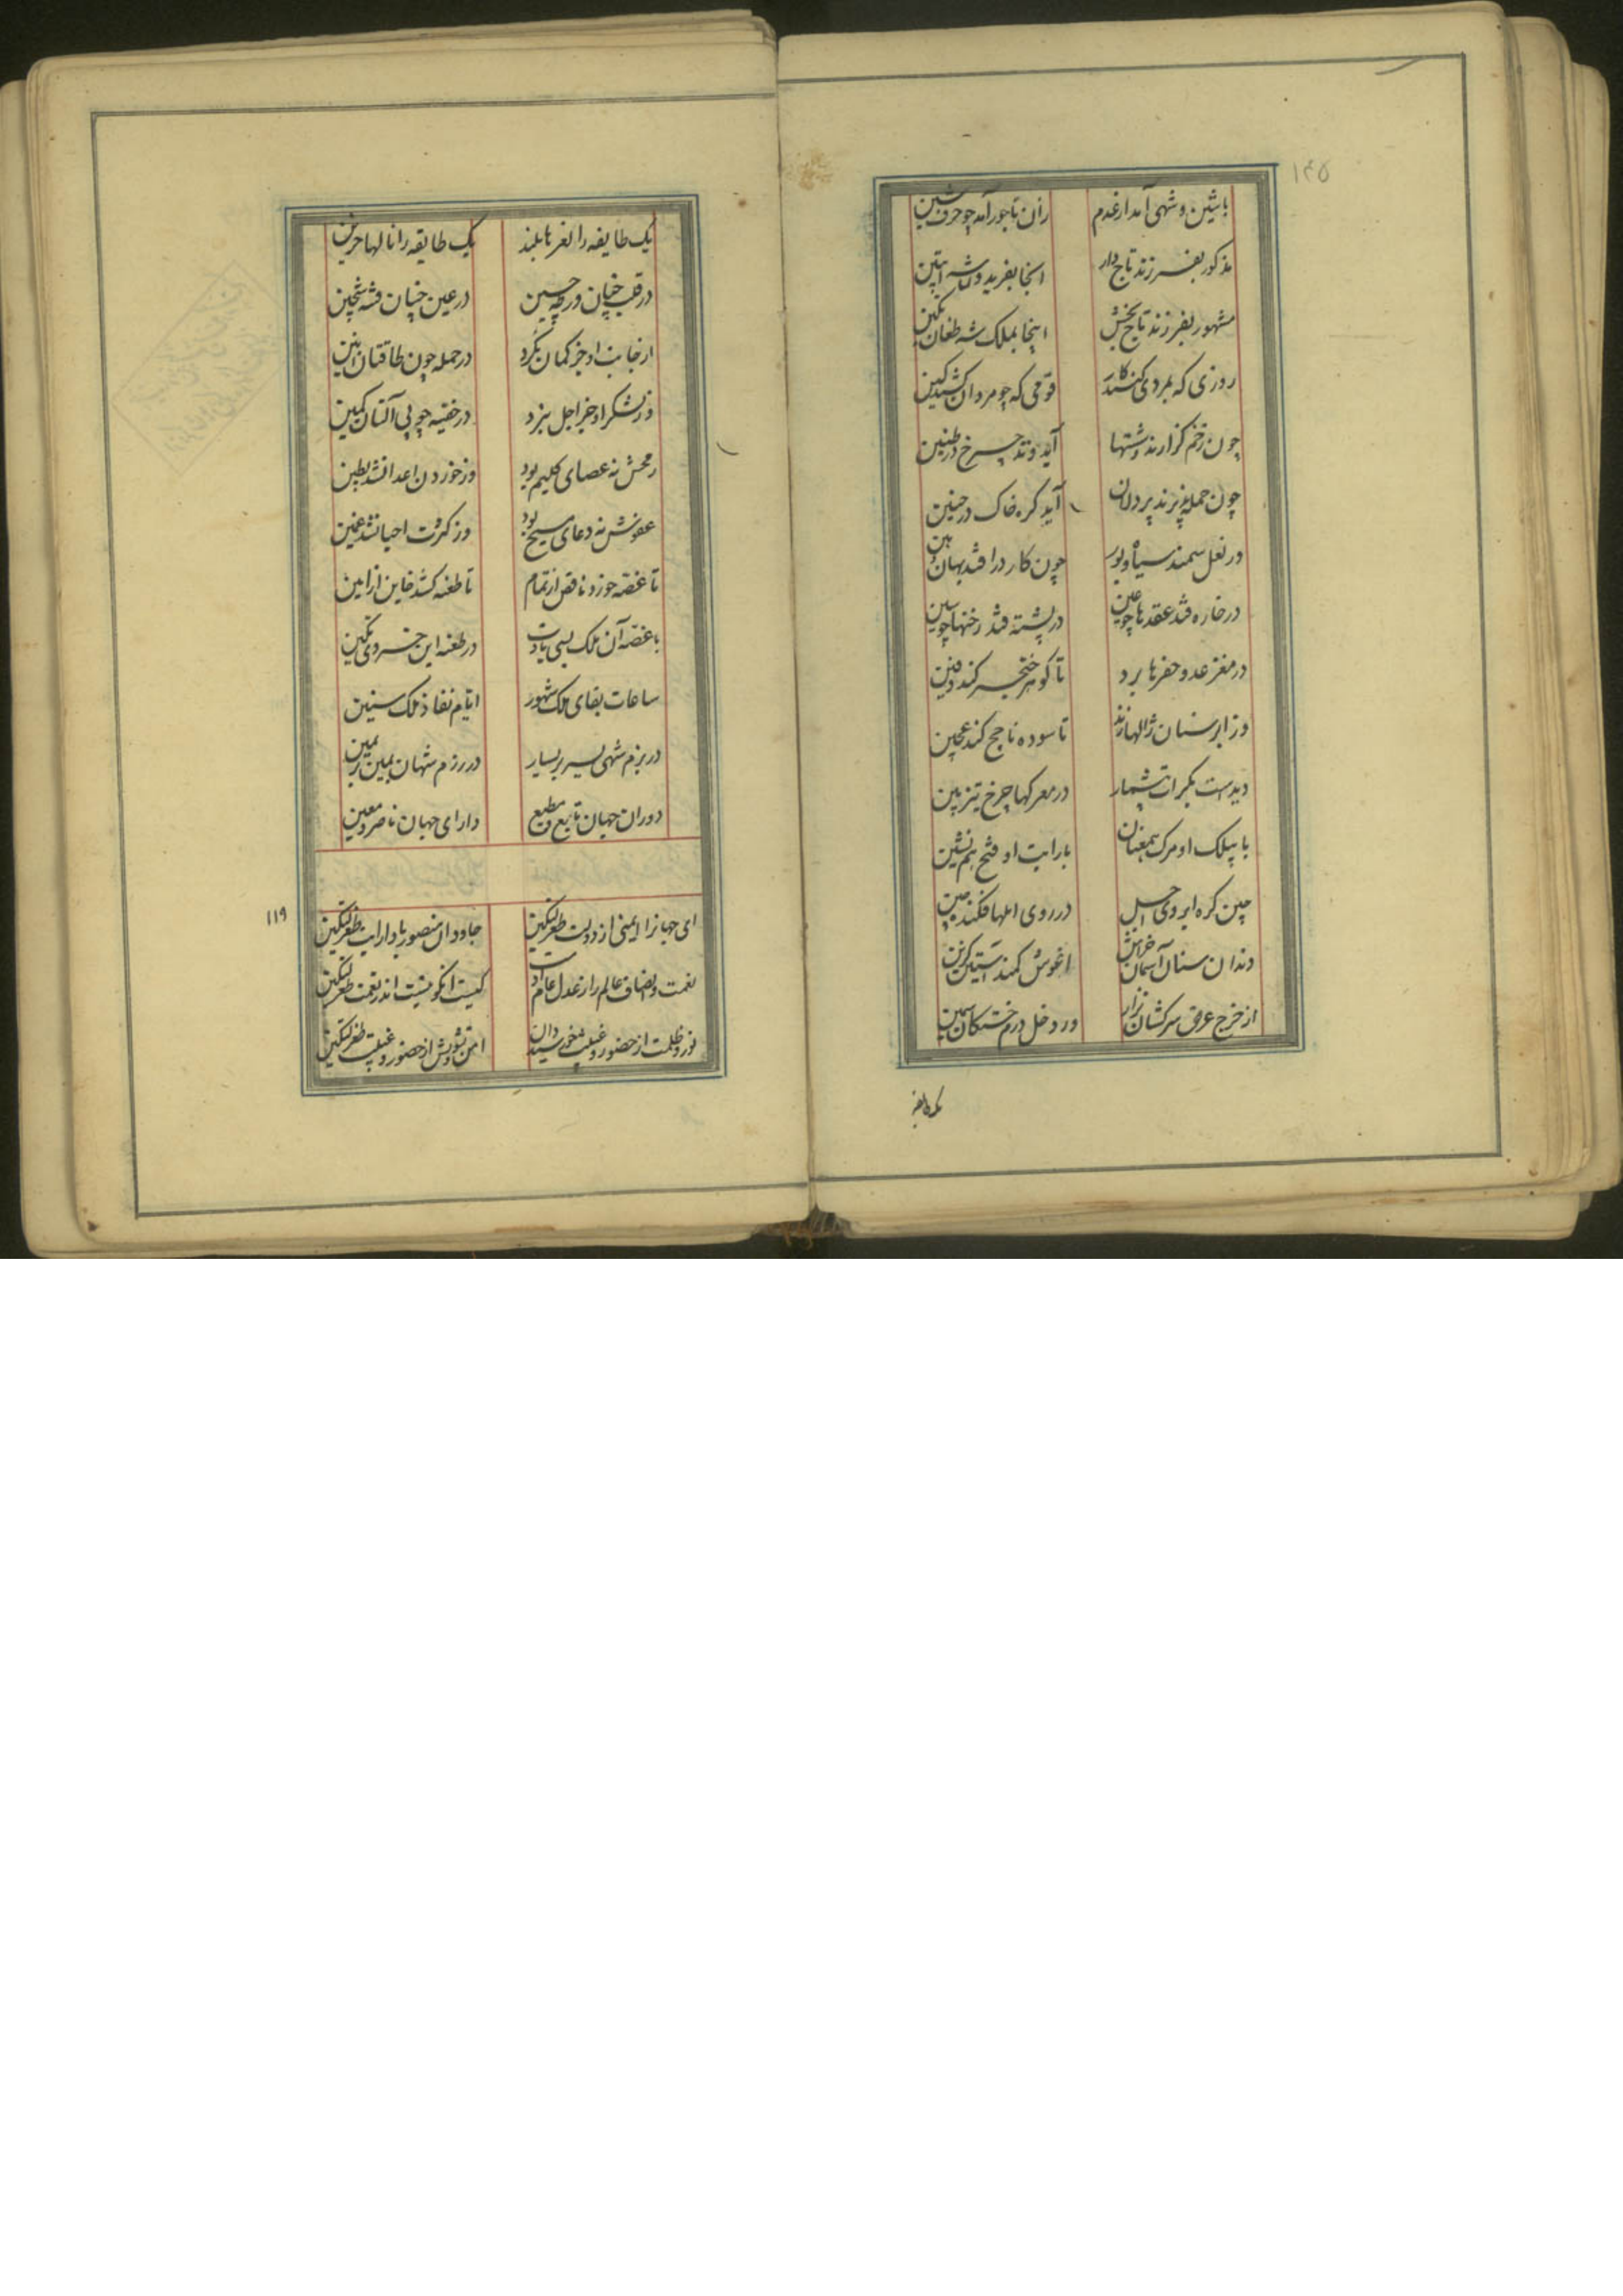 ۱۴۵
باشین و شهی آمد از عدم
زان تاجور آمد چو حرف شین
مذکور بفرزند تاج دار
انجا بفرید و شه ابتین
مشهور بفرزند تاج بخش
اینجا بملک شه طغان تکین
روزی که بمردی کنند کار
قومی که چو مردان کشند کین
چون زخم گزارند دشتها
آید وتد چرخ در طنین
چون حمله پذیرند پردلان
آید کره خاک در حنین
در نعل سمند سیاه و بور
چون کار در افتد بهان و هین
در خاره فتد عقدها چو عین
در پشته فتد رخنها چو سین
در مغز عدو حفرها برد
تا گوهر خنجر کند دفین
وز ابر سنان ژالها زند
تا سوده ناجح کند عجین
دیدست بکرات بیشمار
در معرکها چرخ تیزبین
با بیلک او مرگ همعنان
با رایت او فتح هم نشین
چین کره ابروی اجل
در روی املها فکنده چین
دندان سنان آسمان خراش
اغوش کمند آستین گزین
از خرج عرق سرکشان نزار
ور دخل درم خستکان سمین
یک طایفه
یک طایفه را نعرها بلند
یک طایفه را نالها حزین
در قلب چنان ورطه حسین
در عین چنان فتنه شحین
از جانب او جز کمان نکرد
در حمله چون طاقتان انین
وز لشکر او جز اجل نبرد
در خفیه چو پی آلتان کمین
رمحش نه عصای کلیم بود
وز خوردن اعدا نشد بطین
عفوش نه دعای مسیح بود
وز کثرت احیا نشد غمین
تا غصه خورد ناقص از تمام
تا طعنه کشد خاین از امین
با غصه آن ملک بسی یادت
در طعنه این خسروی مکین
ساعات بقای ملک شهور
ایام نفاذ ملک سنین
در بزم شهی یسر بر یسار
در رزم شهان یمین بر یمین
دوران جهان تابع و مطیع
دارای جهان ناصر و معین
۱۱۹
ای جهانرا ایمنی از دولت طغرلتکین
جاودان منصور بادا رایت طغرلتکین
نعمت و انصاف عالم را ز عدل عام اوست
کیست انکو نیست اندر نعمت طغرلتکین
نور و ظلمت از حضور و غیبت خورشید دان
امن و تشویش از حضور و غیبت طغرلتکین